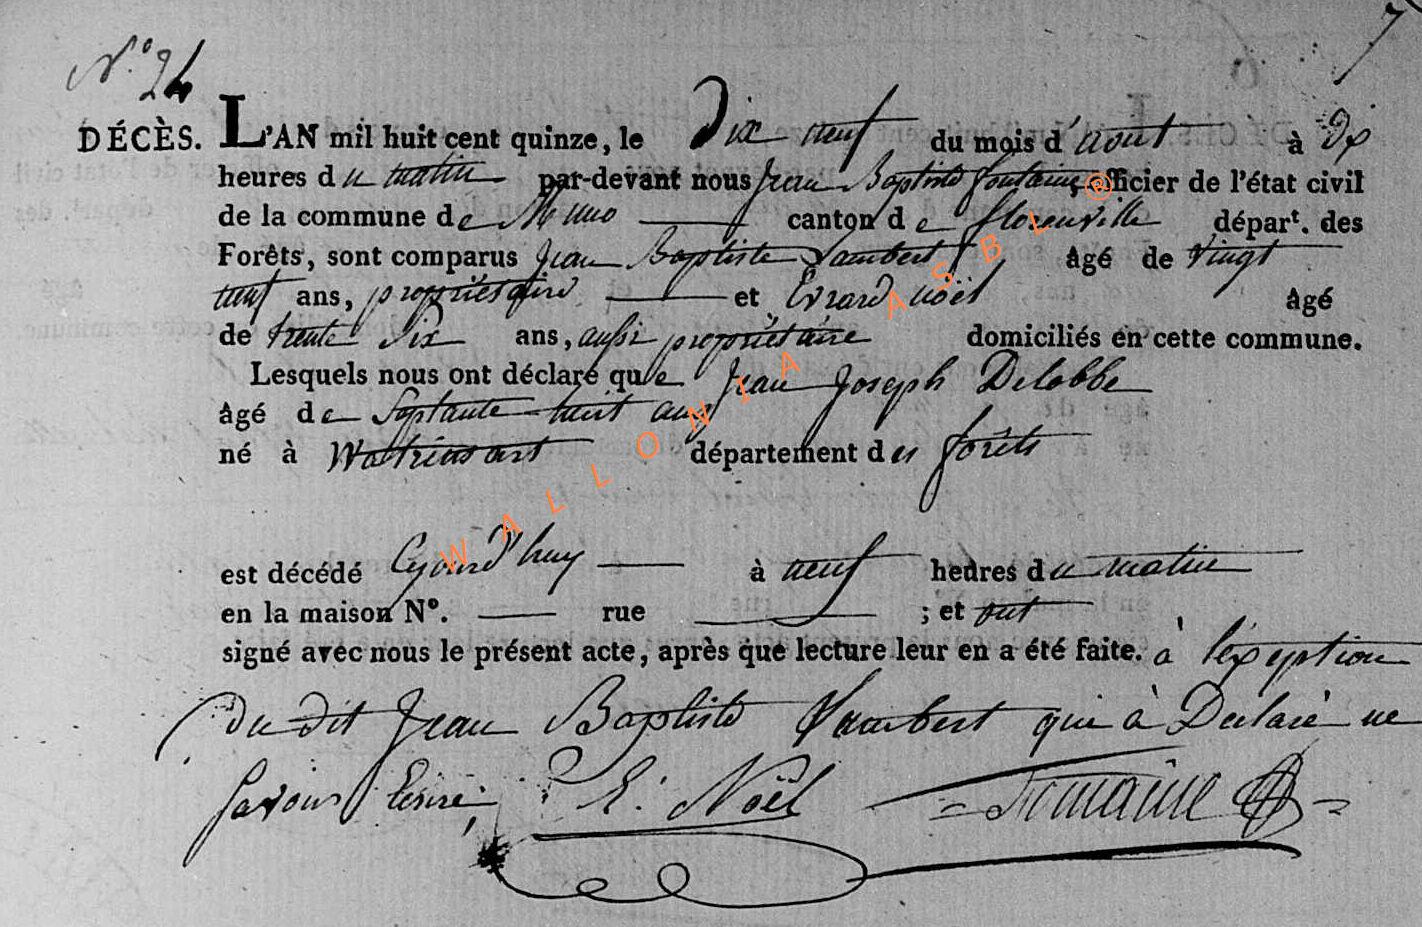 7
N.° 24
DÉCÈS. L'AN mil huit cent quinze, le Dix neuf du mois d'aout à Dix
heures du matin par-devant nous Jean Baptiste fontaine, officier de l'état civil
de la commune de Muno canton de florenville départ. des
Forêts, sont comparus Jean Baptiste Lambert âgé de vingt
neuf ans, propriétaire et Evrard noël âgé
de trente Six ans, aussi propriétaire domiciliés en cette commune.
Lesquels nous ont déclaré que Jean Joseph Delobbe
âgé de Septante huit ans
né à Watrinsart département des forêts
est décédé Cejourd'huy à neuf heures du matin
en la maison N°. rue ; et ont
signé avec nous le présent acte, après que lecture leur en a été faite. à l'exeption
du dit Jean Baptiste Lambert qui à Déclaré ne
Savoir Ecrire
E. Noël Fontaine
WALLONIA ASBL ®